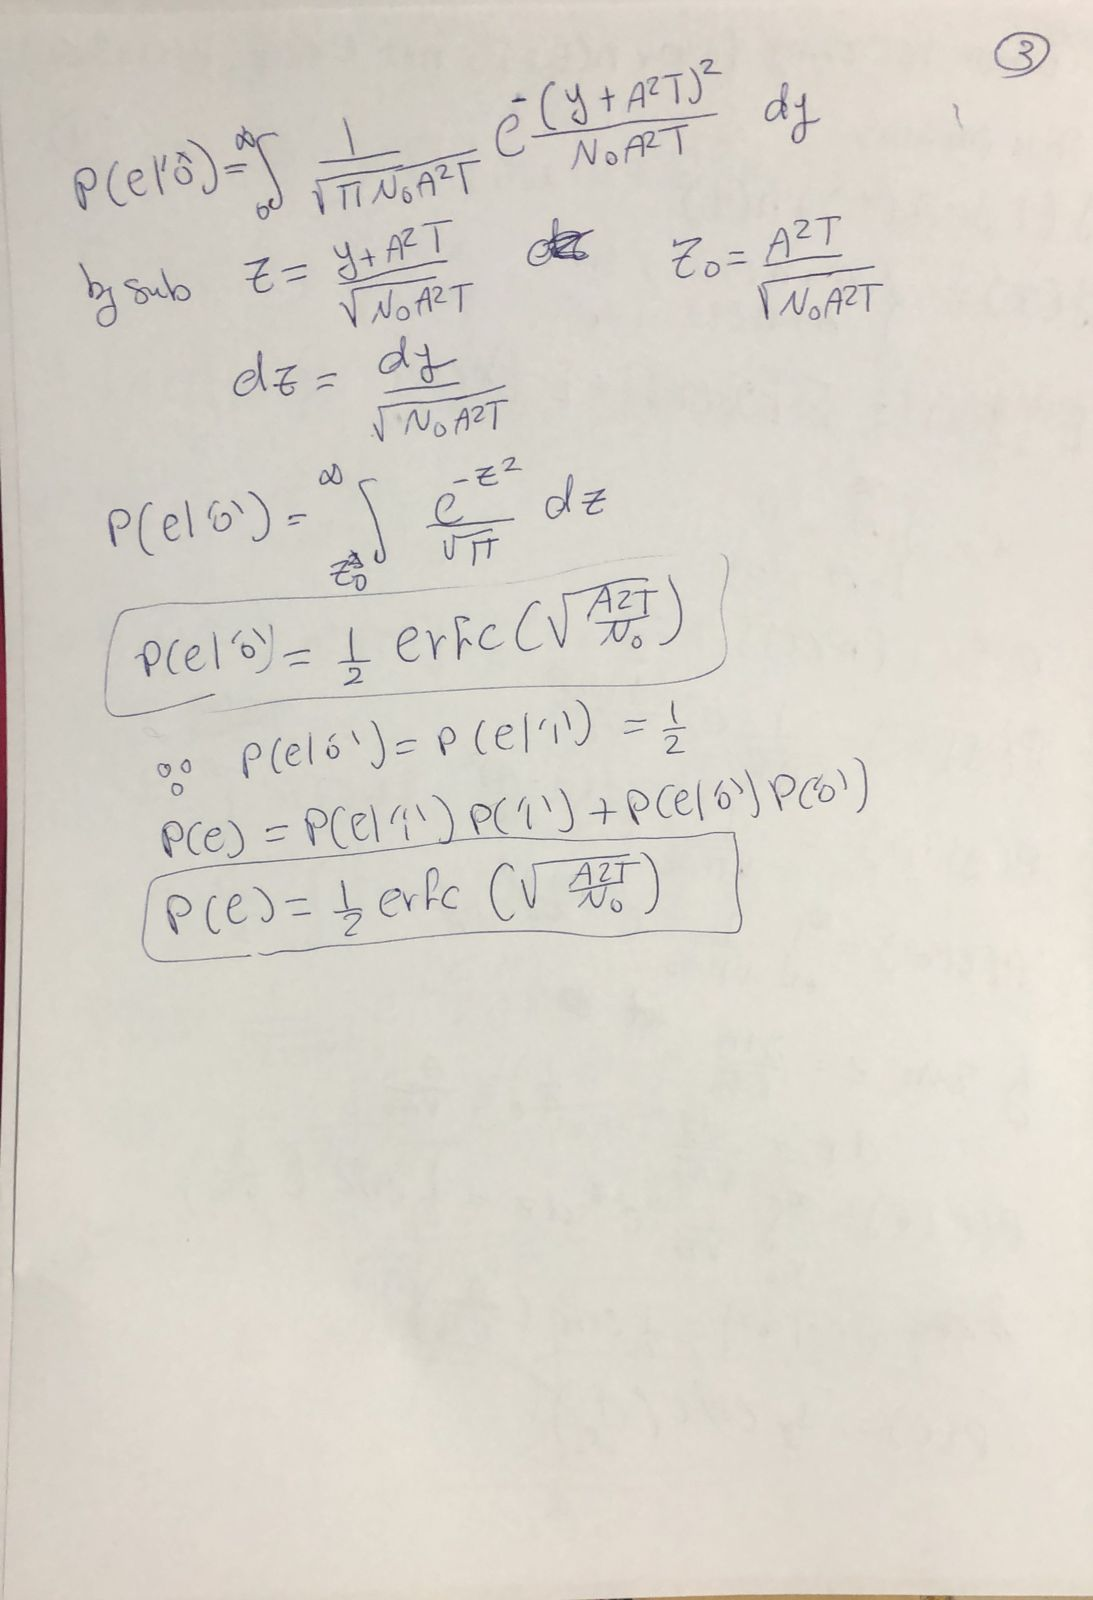 3
P(e|'0') = ∫₀^∞ 1/√(π N₀A²T) e^(-(y + A²T)²/(N₀A²T)) dy
by sub z = (y + A²T)/√(N₀A²T) z₀ = A²T/√(N₀A²T)
dz = dy/√(N₀A²T)
P(e|'0') = ∫_z₀^∞ e^(-z²)/√π dz
P(e|'0') = 1/2 erfc(√(A²T/N₀))
∵ P(e|'0') = P(e|'1') = 1/2
P(e) = P(e|'1') P('1') + P(e|'0') P('0')
P(e) = 1/2 erfc (√(A²T/N₀))